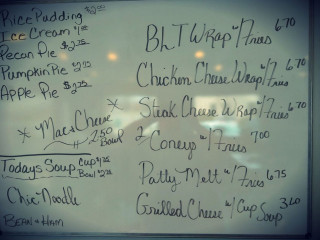 Rice Pudding
Ice Cream
Pecon Pie $2.25
Pumpkin Pie 2.95
Apple Pie $2.25
* Mac & Cheese *
2.50 Bowl
Todays Soup Cup
Bowl
Chic Noodle
Bean & Ham
BLT Wrap w/ Fries 6.70
Chicken Cheese Wrap w/ Fries 6.70
Steak Cheese Wrap w/ Fries 6.70
2 Coneys w/ Fries 7.00
Patty Melt w/ Fries 6.75
Grilled Cheese w/ Cup Soup 3.60